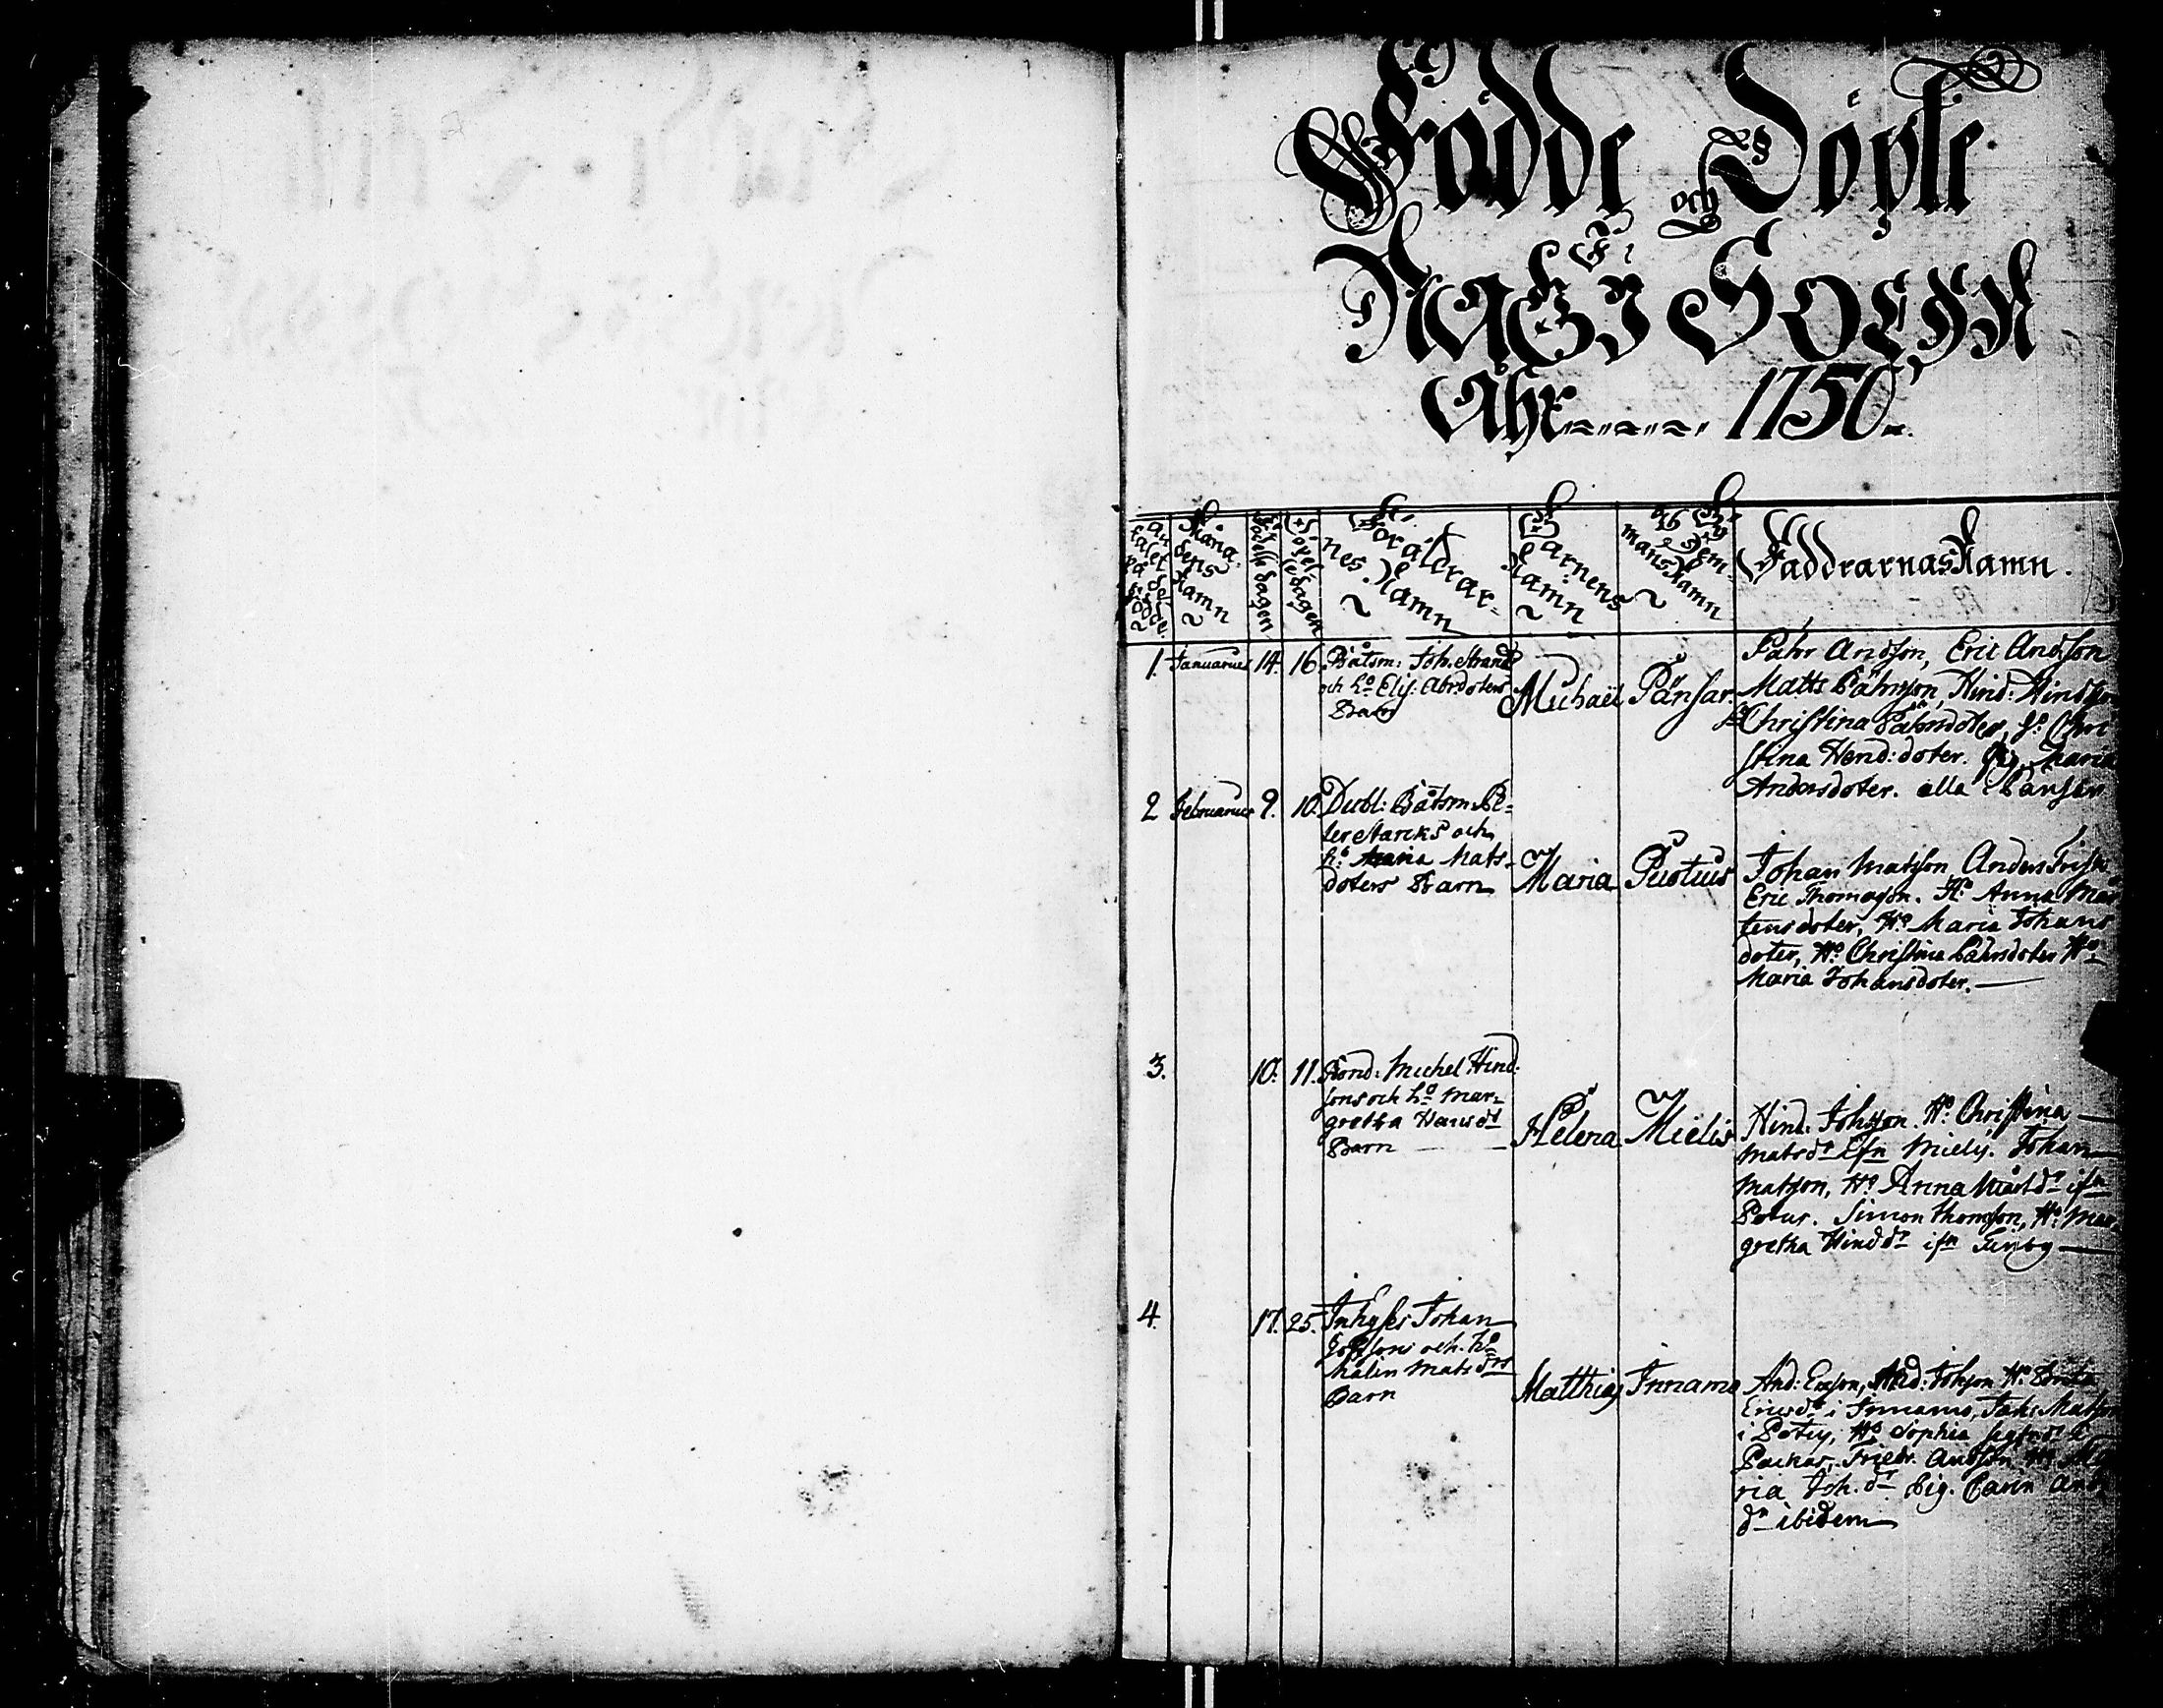 Födde och Döpte
i
NAGU SOCKN
Åhr 1750.
Antalet på de födde.
Månadens Namn
Födelse dagen
Döpelse dagen
Föräldrarnes Namn
Barnens Namn
By Hemmans Namn
Faddrarnas Namn.
1. Januarius 14. 16. Båtsm: Joh. Strand
och ho Elis: Abr.doters
Barn
Michaël Pänsar.
Pähr Andsson, Eric Andsson
Matts Pährsson, Hind: Hindsson
Christina Pährsdoter, Ho Chri
stina Hend:doter. Pig. Maria
Andersdoter. alla i Pänsar
2 Februarius 9. 10. Dubl: Båtsm. Pe-
ter Starcks och
ho Maria Mats-
doters Barn
Maria
Johan Matsson, Anders
Eric Thomasson. Ho Anna Mår
tensdoter, Ho Maria Johans
doter, Ho Christina Pährsdoter Ho
Maria Johansdoter.
3. 10. 11. Bond: Michel Hind:
sons och ho Mar-
gretha Hansdr
Barn
Helena Mielis
Hind: Johsson. Ho Christina
Matsdr ifrn Mielis. Johan
Matsson, Ho Anna Mårtdr ifrn
Potus. Simon Thomsson, Ho Mar
gretha Hinddr ifrn Finby
4. 17. 25. Inhyses Johan
sons och ho
Malin Matsdrs
Barn
Matthias Innamo
And: Ersson, And: Johsson Ho Brita
Ericsdr i Innamo, Joh: Matsson
i Potus, Ho Sophia
Friedr. Andsson Ho Ma
ria Joh.dr Pig. Carin And
dr ibidem